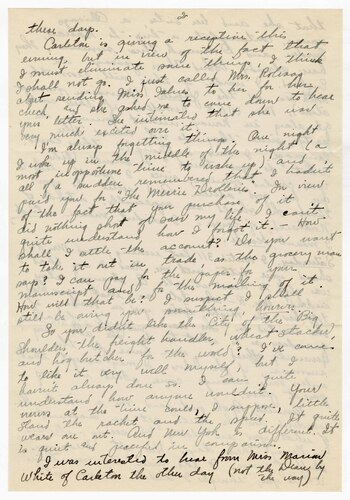 2
these days.
Carleton is giving a reception this
evening, but in view of the fact that
I must eliminate some things, I think
I shall not go. I just called Mrs.
about sending Miss to her for her
check, but she asked me to come down to hear
your letter. She intimated that she was
very much excited over it.
I'm always forgetting things. One night
I woke up in the middle of the night (a
most inopportune time to wake up) and
all of a sudden remembered that I hadn't
paid you for "The Merrie Drolleries". In view
of the fact that your purchase of it
did nothing short of save my life, I can't
quite understand how I forgot it. — How
shall I settle the account? Do you want
to take it out in trade as the grocery man
says? I can pay for the paper for your
manuscript and for the mailing of it.
How will that be? I suspect I shall
still be owing you something, however.
So you didn't like the City of the "Big
Shoulders, the freight handler, wheat stacker,
and hog butcher for the world? I've come
to like it very well myself, but I
haven't always done so. I can quite
understand how anyone wouldn't. Your
nerves at the time could, I suppose, little
stand the racket and the noise. It quite
wears me out. And New York is different. It
is quiet and peaceful in comparison.
I was interested to hear from Miss Marian
White of Carleton the other day (not the Dean, by
the way)